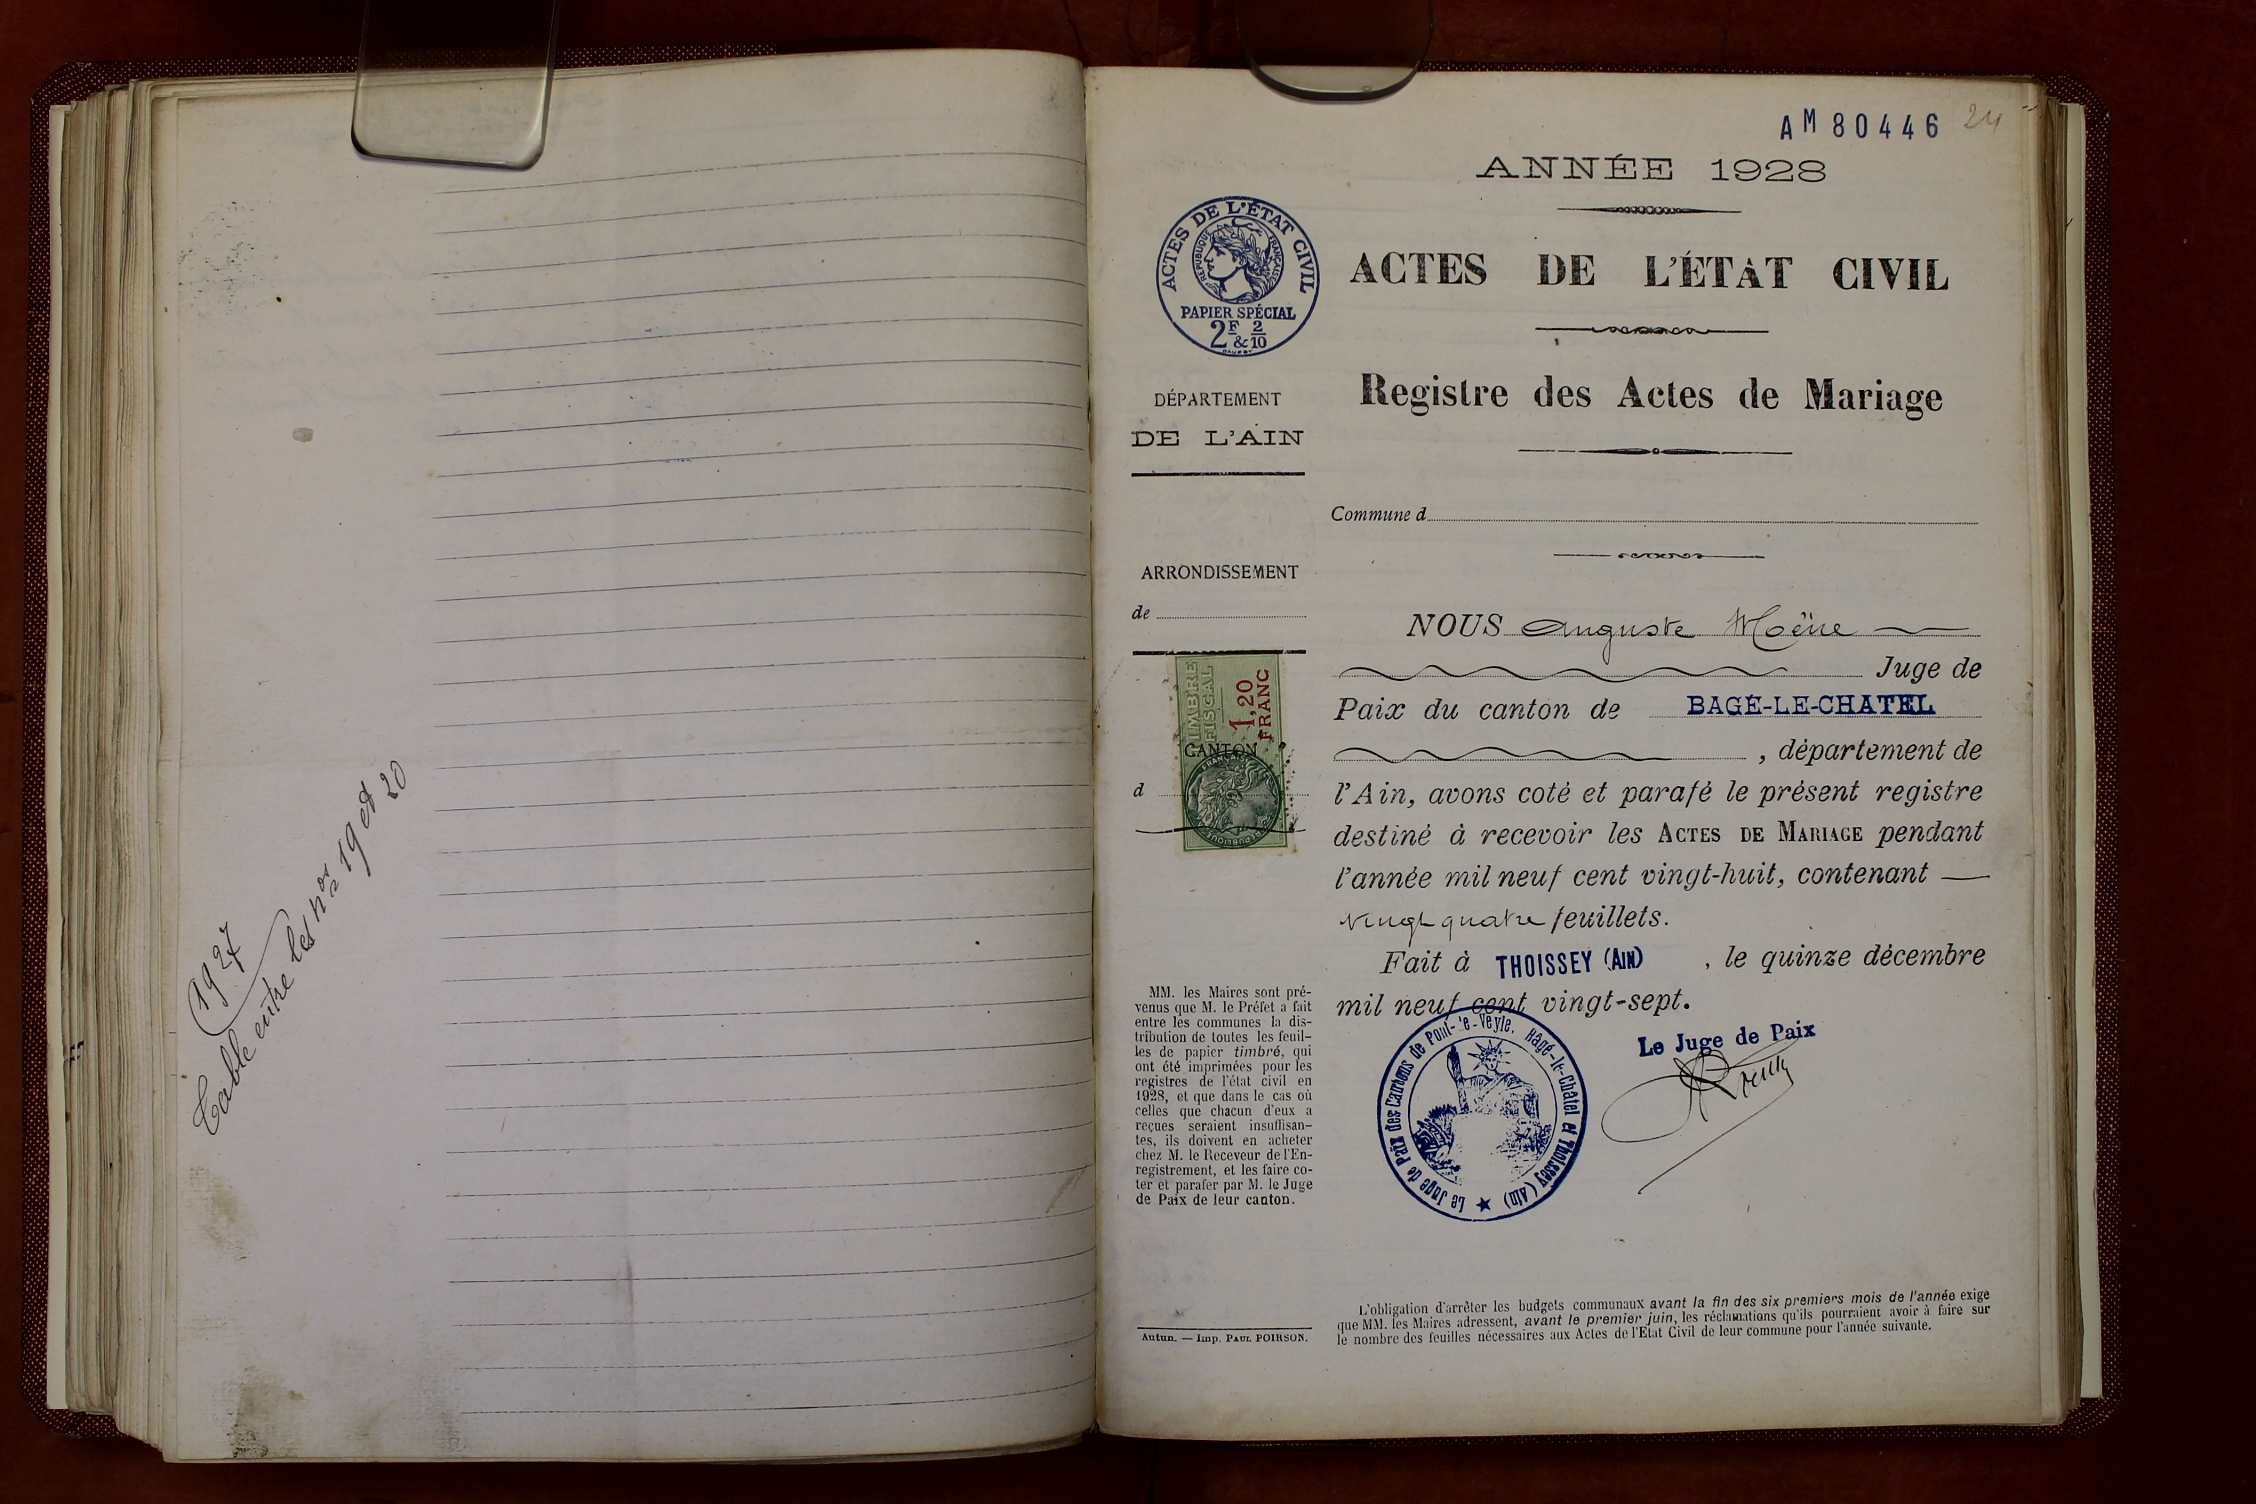 1927
Table entre les nos 19 et 20
AM80446
24
ANNÉE 1928
ACTES DE L'ÉTAT CIVIL
RÉPUBLIQUE FRANÇAISE
PAPIER SPÉCIAL
2F & 2/10
ACTES DE L'ÉTAT CIVIL
Registre des Actes de Mariage
DÉPARTEMENT
DE L'AIN
Commune d
ARRONDISSEMENT
de
TIMBRE
FISCAL
1,20
FRANC
CANTON
d
NOUS Auguste Moëne
Juge de
Paix du canton de BAGÉ-LE-CHATEL
, département de
l'Ain, avons coté et parafé le présent registre
destiné à recevoir les ACTES DE MARIAGE pendant
l'année mil neuf cent vingt-huit, contenant
vingt quatre feuillets.
Fait à THOISSEY (AIN) , le quinze décembre
mil neuf cent vingt-sept.
Le Juge de Paix
Le Juge de Paix des Cantons de Pont-de-Veyle, Bagé-le-Châtel et Thoissey (Ain)
MM. les Maires sont pré-
venus que M. le Préfet a fait
entre les communes la dis-
tribution de toutes les feuil-
les de papier timbré, qui
ont été imprimées pour les
registres de l'état civil en
1928, et que dans le cas où
celles que chacun d'eux a
reçues seraient insuffisan-
tes, ils doivent en acheter
chez M. le Receveur de l'En-
registrement, et les faire co-
ter et parafer par M. le Juge
de Paix de leur canton.
Autun. — Imp. PAUL POIRSON.
L'obligation d'arrêter les budgets communaux avant la fin des six premiers mois de l'année exige
que MM. les Maires adressent, avant le premier juin, les réclamations qu'ils pourraient avoir à faire sur
le nombre des feuilles nécessaires aux Actes de l'Etat Civil de leur commune pour l'année suivante.